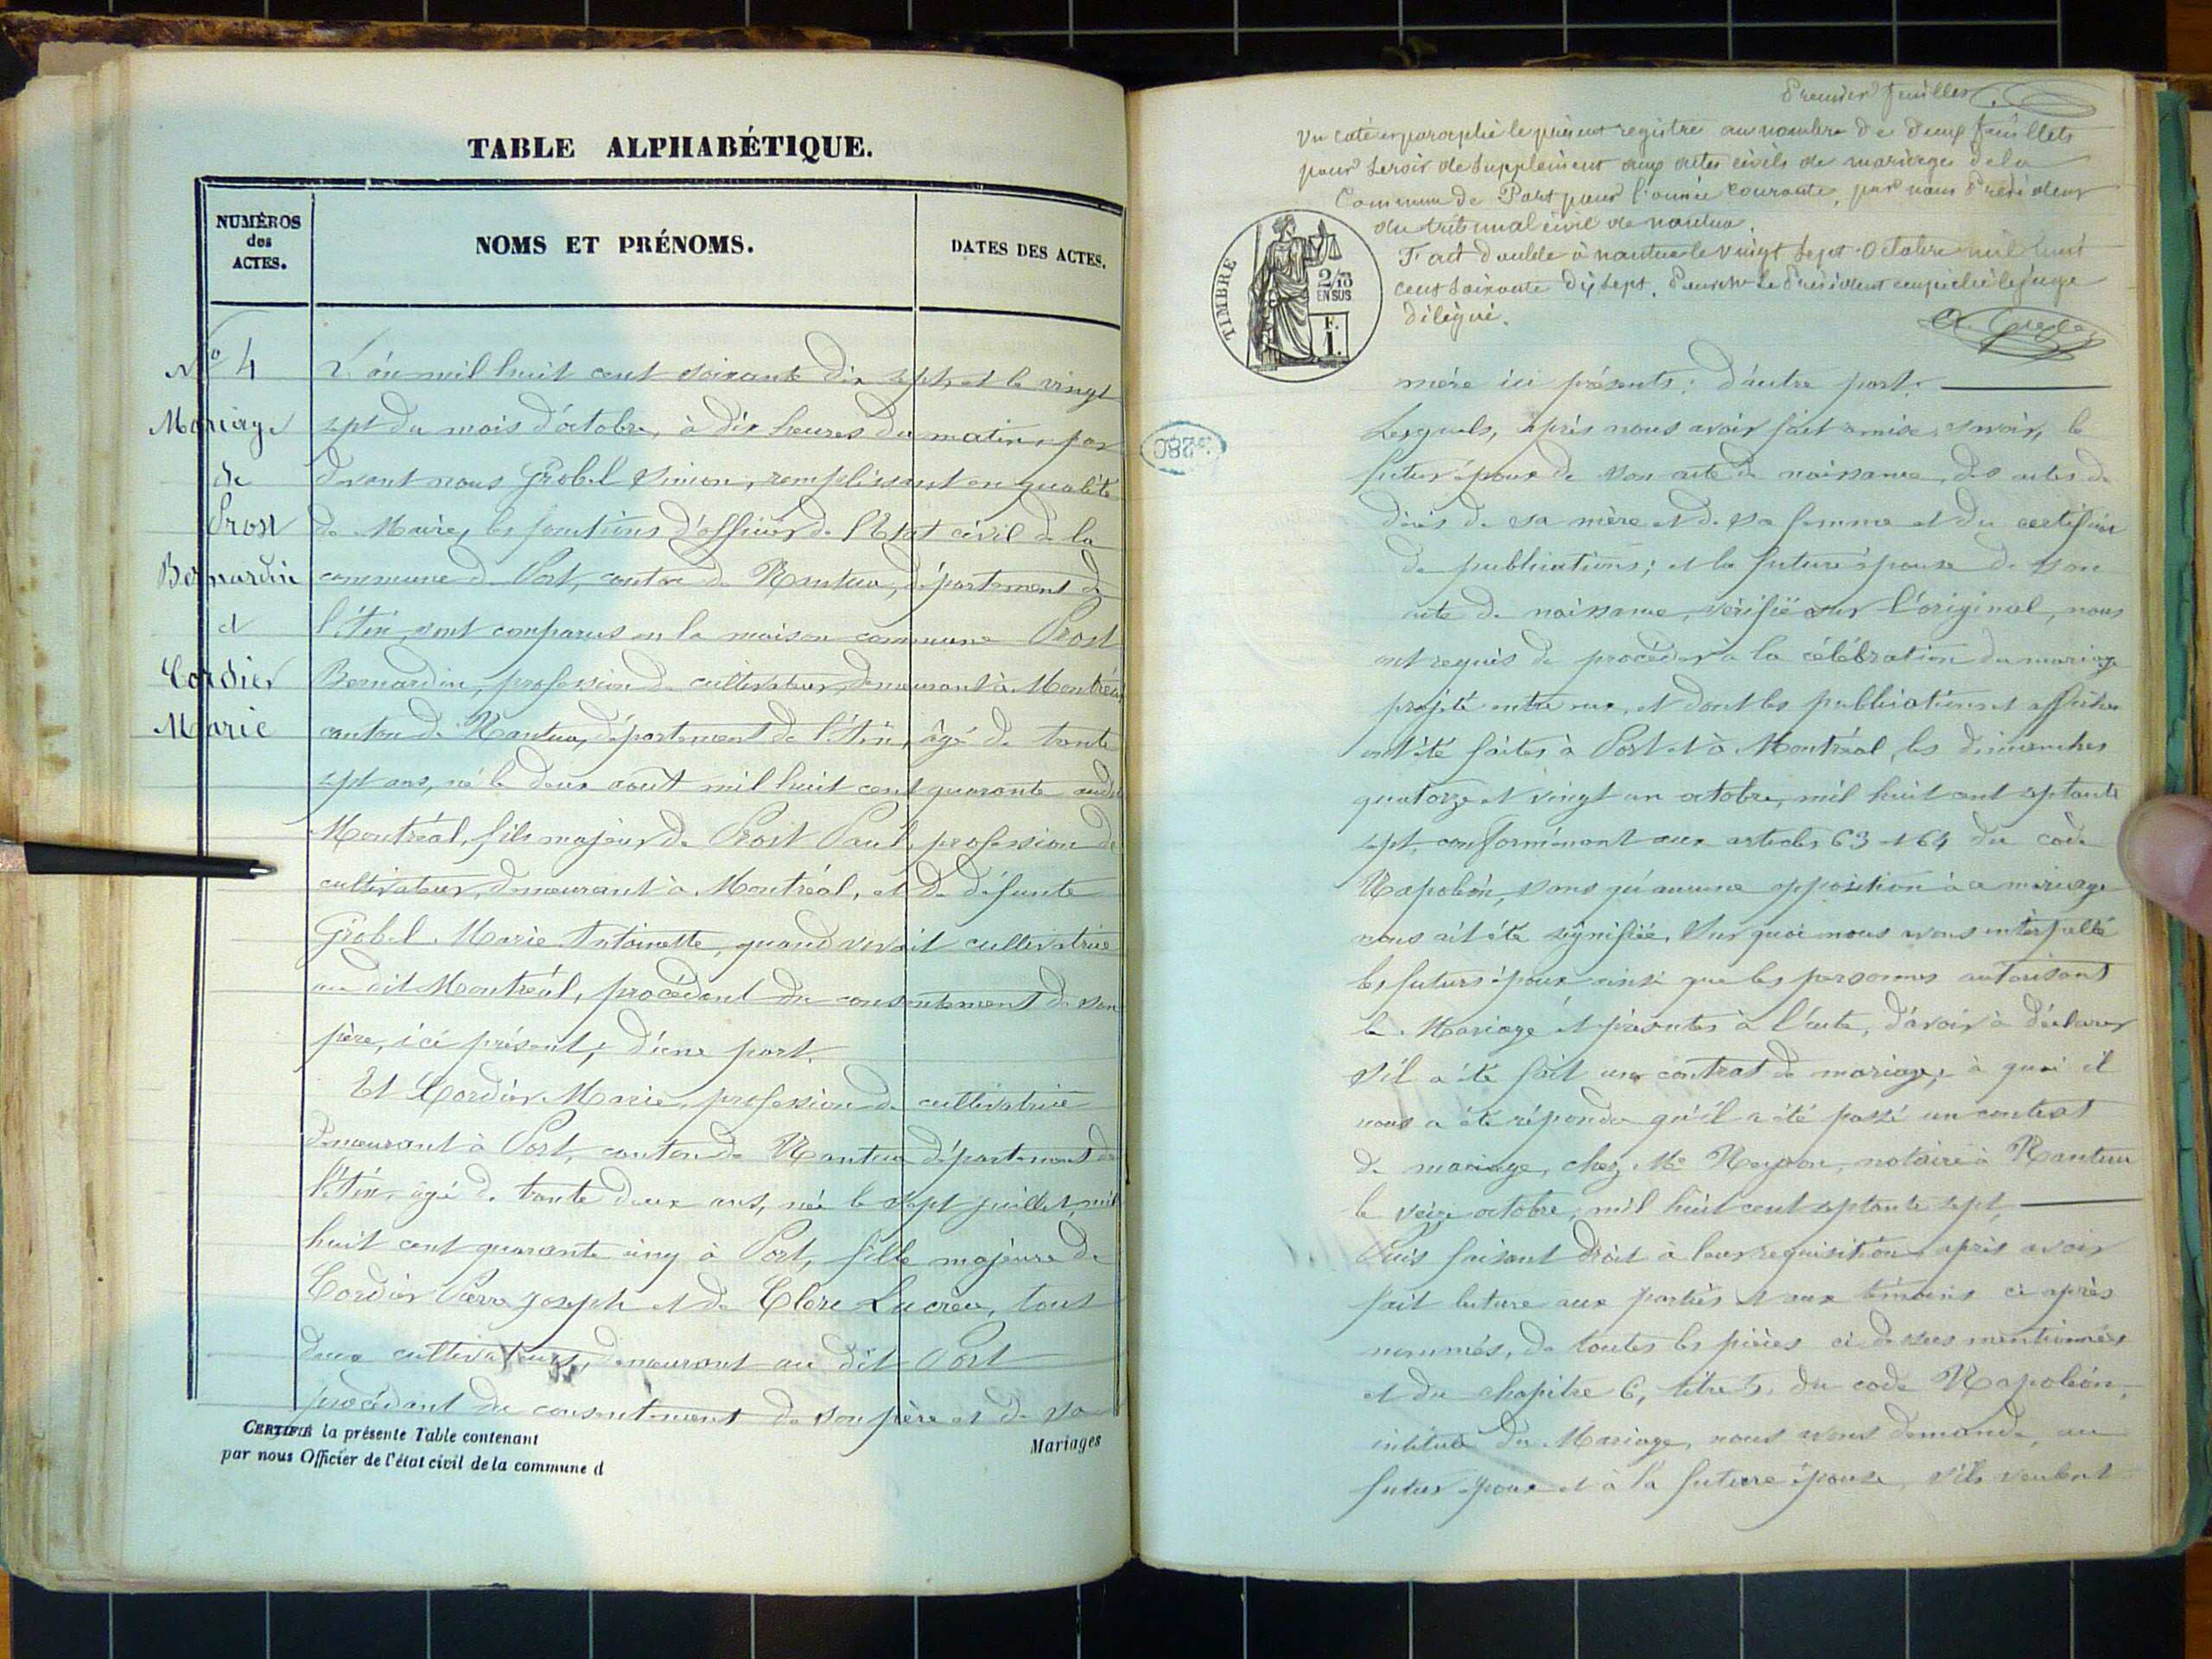 TABLE ALPHABÉTIQUE.
NUMÉROS
des
ACTES.
NOMS ET PRÉNOMS.
DATES DES ACTES.
Nº 4
Mariage
de
Prost
Bernardin
et
Cordier
Marie
L'an mil huit cent soixante dix sept, et le vingt
sept du mois d'octobre, à dix heures du matin, par
devant nous Grobel Simon, remplissant en qualité
de Maire, les fonctions d'officier de l'Etat civil de la
commune de Port, canton de Nantua, département de
l'Ain, sont comparus en la maison commune Prost
Bernardin, profession de cultivateur, demeurant à Montréal,
canton de Nantua, département de l'Ain, âgé de trente
sept ans, né le deux août mil huit cent quarante audit
Montréal, fils majeur de Prost Paul, profession de
cultivateur, demeurant à Montréal, et de défunte
Grobel Marie Antoinette, quand vivait cultivatrice
au dit Montréal, procédant du consentement de son
père, ici présent, d'une part.
Et Cordier Marie, profession de cultivatrice
demeurant à Port, canton de Nantua département de
l'Ain, âgé de trente deux ans, née le sept juillet mil
huit cent quarante cinq à Port, fille majeure de
Cordier Pierre Joseph et de Clere Lucrèce, tous
deux cultivateurs, demeurant au dit Port
procédant du consentement de son père et de sa
CERTIFIÉ la présente Table contenant
Mariages
par nous Officier de l'état civil de la commune d
Premier feuillet
Vu coté et paraphé le présent registre au nombre de deux feuillets
pour servir de supplément aux actes civils de mariage de la
Commune de Port pour l'année courante, par nous Président
du tribunal civil de nantua.
Fait double à nantua le vingt sept Octobre mil huit
cent soixante dix sept. Pour Mr le Président empêché le juge
délégué.
TIMBRE
2/10
EN SUS
F.
1.
280
mère ici présents; d'autre part.
Lesquels, après nous avoir fait remise, savoir, le
futur époux de son acte de naissance, des actes de
décès de sa mère et de sa femme et du certificat
de publications; et la future épouse de son
acte de naissance, vérifié sur l'original, nous
ont requis de procéder à la célébration du mariage
projeté entre eux, et dont les publications et affiches
ont été faites à Port et à Montréal, les dimanches
quatorze et vingt un octobre, mil huit cent septante
sept, conformément aux articles 63 et 64 du code
Napoléon, sans qu'aucune opposition à ce mariage
nous ait été signifiée, Sur quoi nous avons interpellé
les futurs époux ainsi que les personnes autorisant
le Mariage et présentes à l'acte, d'avoir à déclarer
s'il a été fait un contrat de mariage, à quoi il
nous a été répondu qu'il a été passé un contrat
de mariage, chez Me notaire à Nantua
le seize octobre, mil huit cent septante sept,
Puis faisant droit à leur requisition après avoir
fait lecture aux parties et aux témoins ci après
nommés, de toutes les pièces ci dessus mentionnées
et du chapitre 6, titre 5, du code Napoléon,
intitulé du Mariage, nous avons demandé, au
futur époux et à la future épouse, s'ils veulent